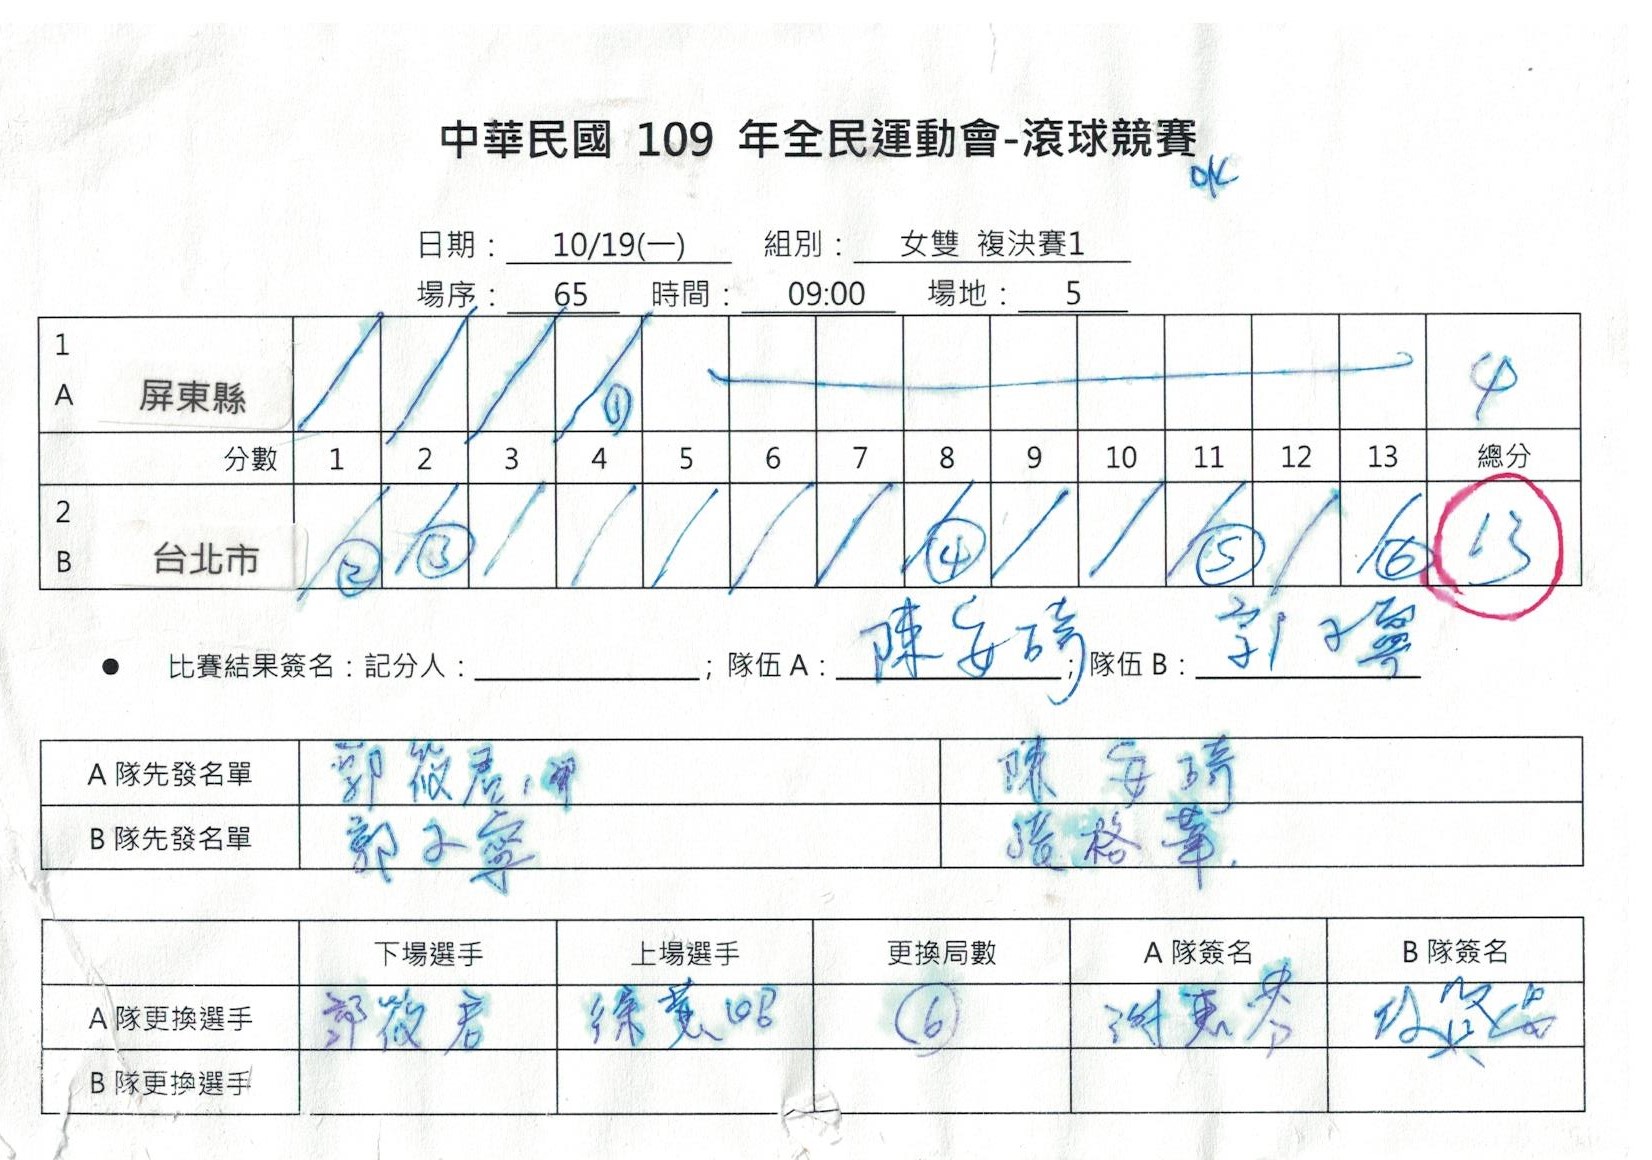 中華民國 109 年全民運動會-滾球競賽
OK
日期： 10/19(一) 組別： 女雙 複決賽1
場序： 65 時間： 09:00 場地： 5
1
A 屏東縣 ① 4
分數 1 2 3 4 5 6 7 8 9 10 11 12 13 總分
2
B 台北市 ② ③ ④ ⑤ ⑥ 13
● 比賽結果簽名：記分人： ；隊伍 A： 陳安琦 ；隊伍 B：
A 隊先發名單 郭筱君 陳安琦
B 隊先發名單 郭子寧
下場選手 上場選手 更換局數 A 隊簽名 B 隊簽名
A 隊更換選手 郭筱君 徐慧 ⑥ 謝惠芬
B 隊更換選手